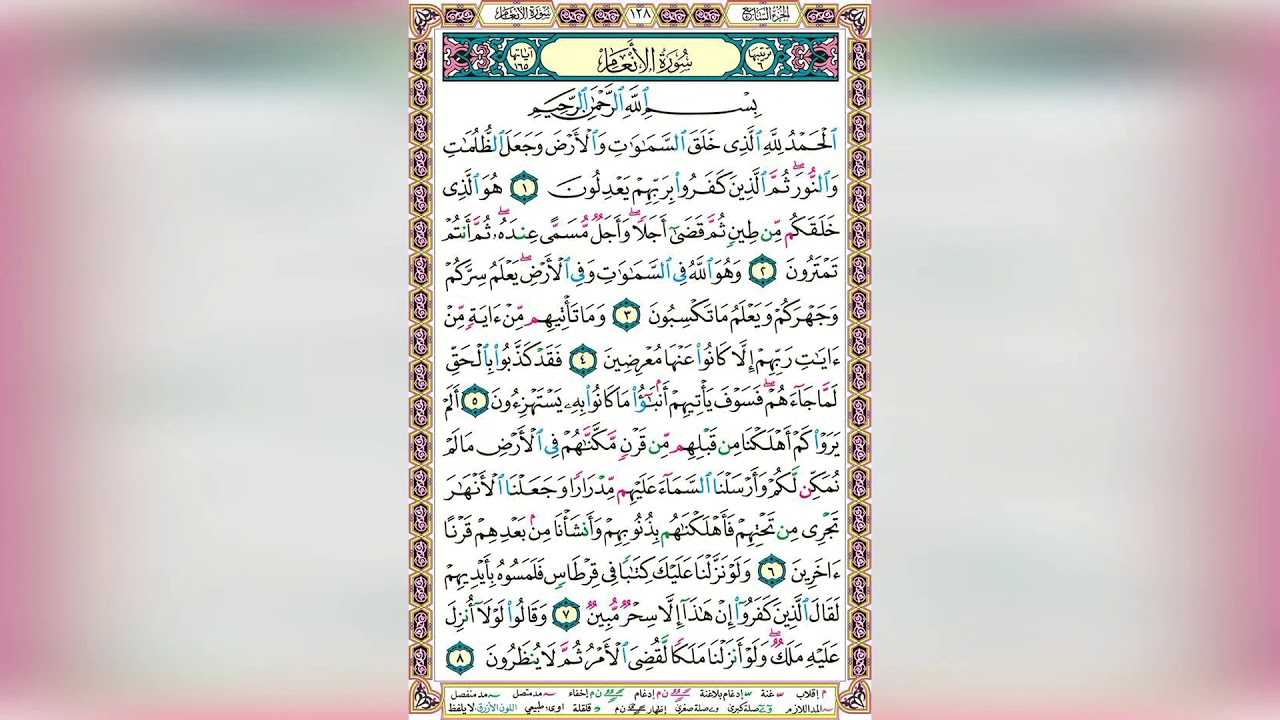 الجزء السابع ١٢٨ سورة الأنعام
ترتيبها ٦ سُورَةُ الأَنْعَام آياتها ١٦٥
بِسْمِ ٱللَّهِ ٱلرَّحْمَٰنِ ٱلرَّحِيمِ
ٱلْحَمْدُ لِلَّهِ ٱلَّذِى خَلَقَ ٱلسَّمَٰوَٰتِ وَٱلْأَرْضَ وَجَعَلَ ٱلظُّلُمَٰتِ
وَٱلنُّورَ ۖ ثُمَّ ٱلَّذِينَ كَفَرُوا۟ بِرَبِّهِمْ يَعْدِلُونَ ١ هُوَ ٱلَّذِى
خَلَقَكُم مِّن طِينٍ ثُمَّ قَضَىٰٓ أَجَلًا ۖ وَأَجَلٌ مُّسَمًّى عِندَهُۥ ۖ ثُمَّ أَنتُمْ
تَمْتَرُونَ ٢ وَهُوَ ٱللَّهُ فِى ٱلسَّمَٰوَٰتِ وَفِى ٱلْأَرْضِ ۖ يَعْلَمُ سِرَّكُمْ
وَجَهْرَكُمْ وَيَعْلَمُ مَا تَكْسِبُونَ ٣ وَمَا تَأْتِيهِم مِّنْ ءَايَةٍ مِّنْ
ءَايَٰتِ رَبِّهِمْ إِلَّا كَانُوا۟ عَنْهَا مُعْرِضِينَ ٤ فَقَدْ كَذَّبُوا۟ بِٱلْحَقِّ
لَمَّا جَآءَهُمْ ۖ فَسَوْفَ يَأْتِيهِمْ أَنۢبَٰٓؤُا۟ مَا كَانُوا۟ بِهِۦ يَسْتَهْزِءُونَ ٥ أَلَمْ
يَرَوْا۟ كَمْ أَهْلَكْنَا مِن قَبْلِهِم مِّن قَرْنٍ مَّكَّنَّٰهُمْ فِى ٱلْأَرْضِ مَا لَمْ
نُمَكِّن لَّكُمْ وَأَرْسَلْنَا ٱلسَّمَآءَ عَلَيْهِم مِّدْرَارًا وَجَعَلْنَا ٱلْأَنْهَٰرَ
تَجْرِى مِن تَحْتِهِمْ فَأَهْلَكْنَٰهُم بِذُنُوبِهِمْ وَأَنشَأْنَا مِنۢ بَعْدِهِمْ قَرْنًا
ءَاخَرِينَ ٦ وَلَوْ نَزَّلْنَا عَلَيْكَ كِتَٰبًا فِى قِرْطَاسٍ فَلَمَسُوهُ بِأَيْدِيهِمْ
لَقَالَ ٱلَّذِينَ كَفَرُوٓا۟ إِنْ هَٰذَآ إِلَّا سِحْرٌ مُّبِينٌ ٧ وَقَالُوا۟ لَوْلَآ أُنزِلَ
عَلَيْهِ مَلَكٌ ۖ وَلَوْ أَنزَلْنَا مَلَكًا لَّقُضِىَ ٱلْأَمْرُ ثُمَّ لَا يُنظَرُونَ ٨
م إقلاب غنة إدغام بلاغنة ن م إدغام ن م إخفاء مد متصل مد منفصل
المد اللازم صلة كبرى صلة صغرى إظهار ن م قلقلة اوى: طبيعي اللون الأزرق لا يلفظ